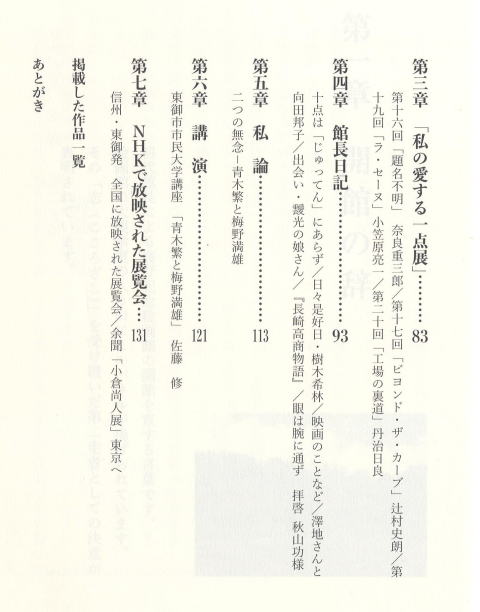 第三章 「私の愛する一点展」………83
第十六回「題名不明」 奈良重三郎／第十七回「ビヨンド・ザ・カーブ」辻村史朗／第
十九回「ラ・セーヌ」小笠原亮一／第二十回「工場の裏道」丹治日良
第四章 館長日記………………93
十点は「じゅってん」にあらず／日々是好日・樹木希林／映画のことなど／澤地さんと
向田邦子／出会い・靉光の娘さん／『長崎高商物語』／眼は腕に通ず 拝啓 秋山功様
第五章 私 論…………………113
二つの無念－青木繁と梅野満雄
第六章 講 演…………………121
東御市市民大学講座 「青木繁と梅野満雄」 佐藤 修
第七章 NHKで放映された展覧会…131
信州・東御発 全国に放映された展覧会／余聞「小倉尚人展」東京へ
掲載した作品一覧
あとがき